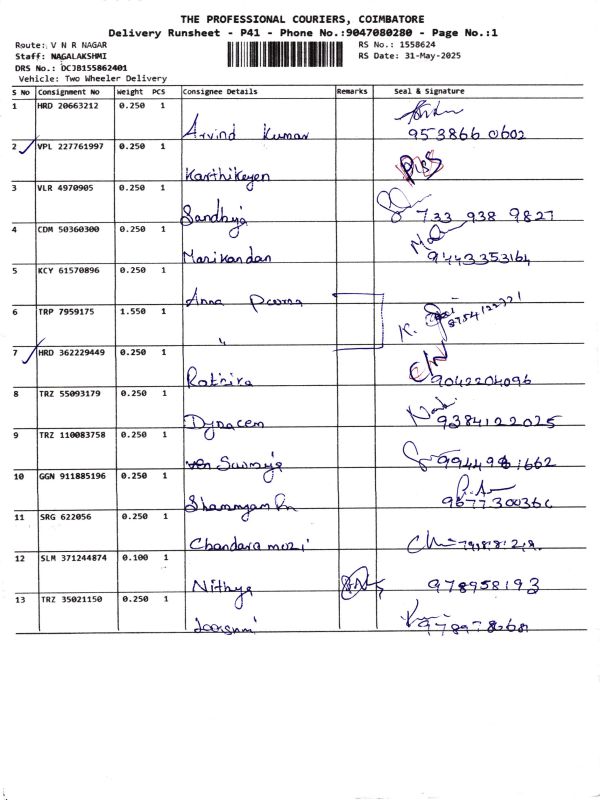 THE PROFESSIONAL COURIERS, COIMBATORE
Delivery Runsheet - P41 - Phone No.:9047080280 - Page No.:1
Route: V N R NAGAR
RS No.: 1558624
Staff: NAGALAKSHMI
RS Date: 31-May-2025
DRS No.: DCJB155862401
Vehicle: Two Wheeler Delivery
S No Consignment No Weight PCS Consignee Details Remarks Seal & Signature
1 HRD 20663212 0.250 1
Arvind Kumar 953866 0602
2 VPL 227761997 0.250 1
Karthikeyen
3 VLR 4970905 0.250 1
Sandhya 733 938 9827
4 CDM 50360300 0.250 1
Marikandan 9443353164
5 KCY 61570896 0.250 1
Anna Poorna
6 TRP 7959175 1.550 1
" K. 8754122721
7 HRD 362229449 0.250 1
9042204096
8 TRZ 55093179 0.250 1
Dynacem 9384122025
9 TRZ 110083758 0.250 1
9944981662
10 GGN 911885196 0.250 1
9677300360
11 SRG 622056 0.250 1
Chandara mozi
12 SLM 371244874 0.100 1
Nithya 978958193
13 TRZ 35021150 0.250 1